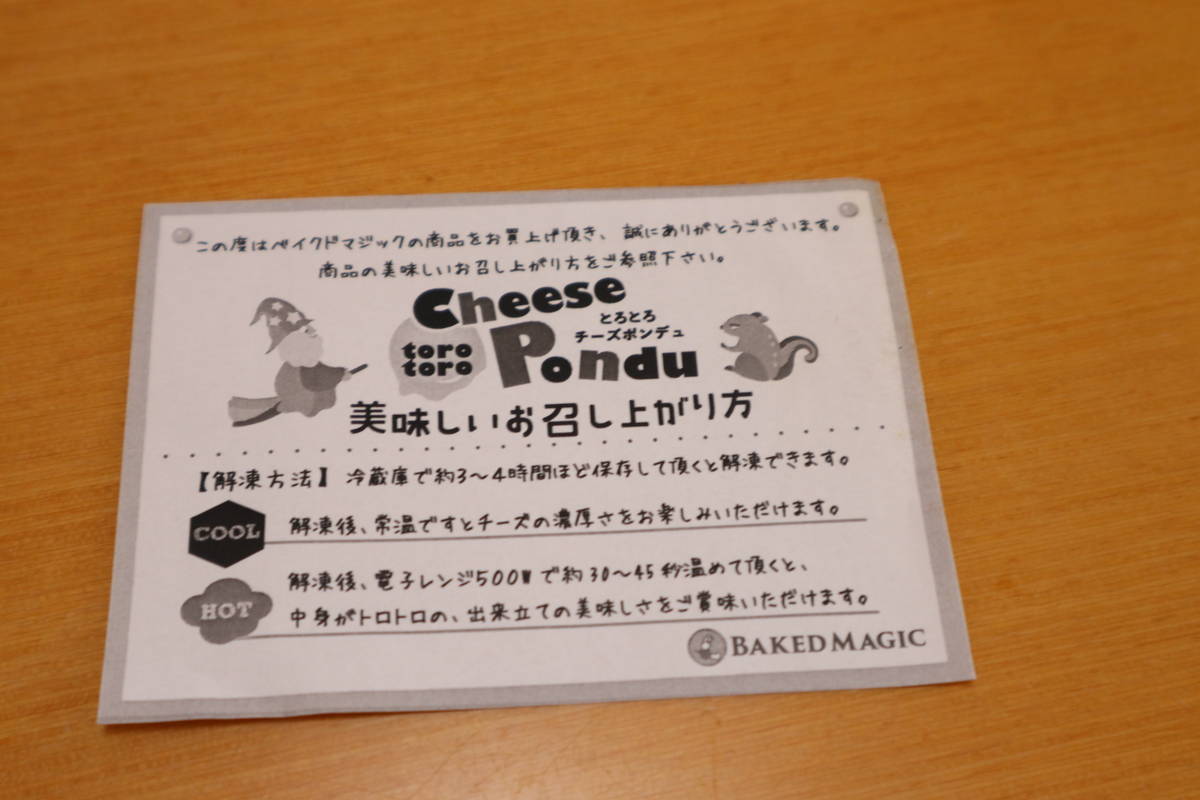 この度はベイクドマジックの商品をお買上げ頂き、誠にありがとうございます。
商品の美味しいお召し上がり方をご参照下さい。
Cheese
とろとろ
チーズポンデュ
toro
toro
Pondu
美味しいお召し上がり方
【解凍方法】 冷蔵庫で約3〜4時間ほど保存して頂くと解凍できます。
COOL
解凍後、常温ですとチーズの濃厚さをお楽しみいただけます。
HOT
解凍後、電子レンジ500Wで約30〜45秒温めて頂くと、
中身がトロトロの、出来立ての美味しさをご賞味いただけます。
BAKED MAGIC